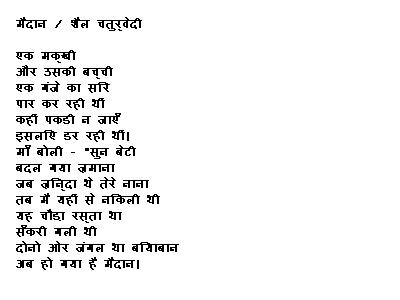 मैदान / शैल चतुर्वेदी
एक मक्खी
और उसकी बच्ची
एक गंजे का सिर
पार कर रही थीं
कहीं पकडी न जाएँ
इसलिए डर रही थीं।
माँ बोली - "सुन बेटी
बदल गया ज़माना
जब ज़िन्दा थे तेरे नाना
तब मै यहीं से निकली थी
यह चौडा़ रास्ता था
सँकरी गली थी
दोनो ओर जंगल था बियाबान
अब हो गया है मैदान।